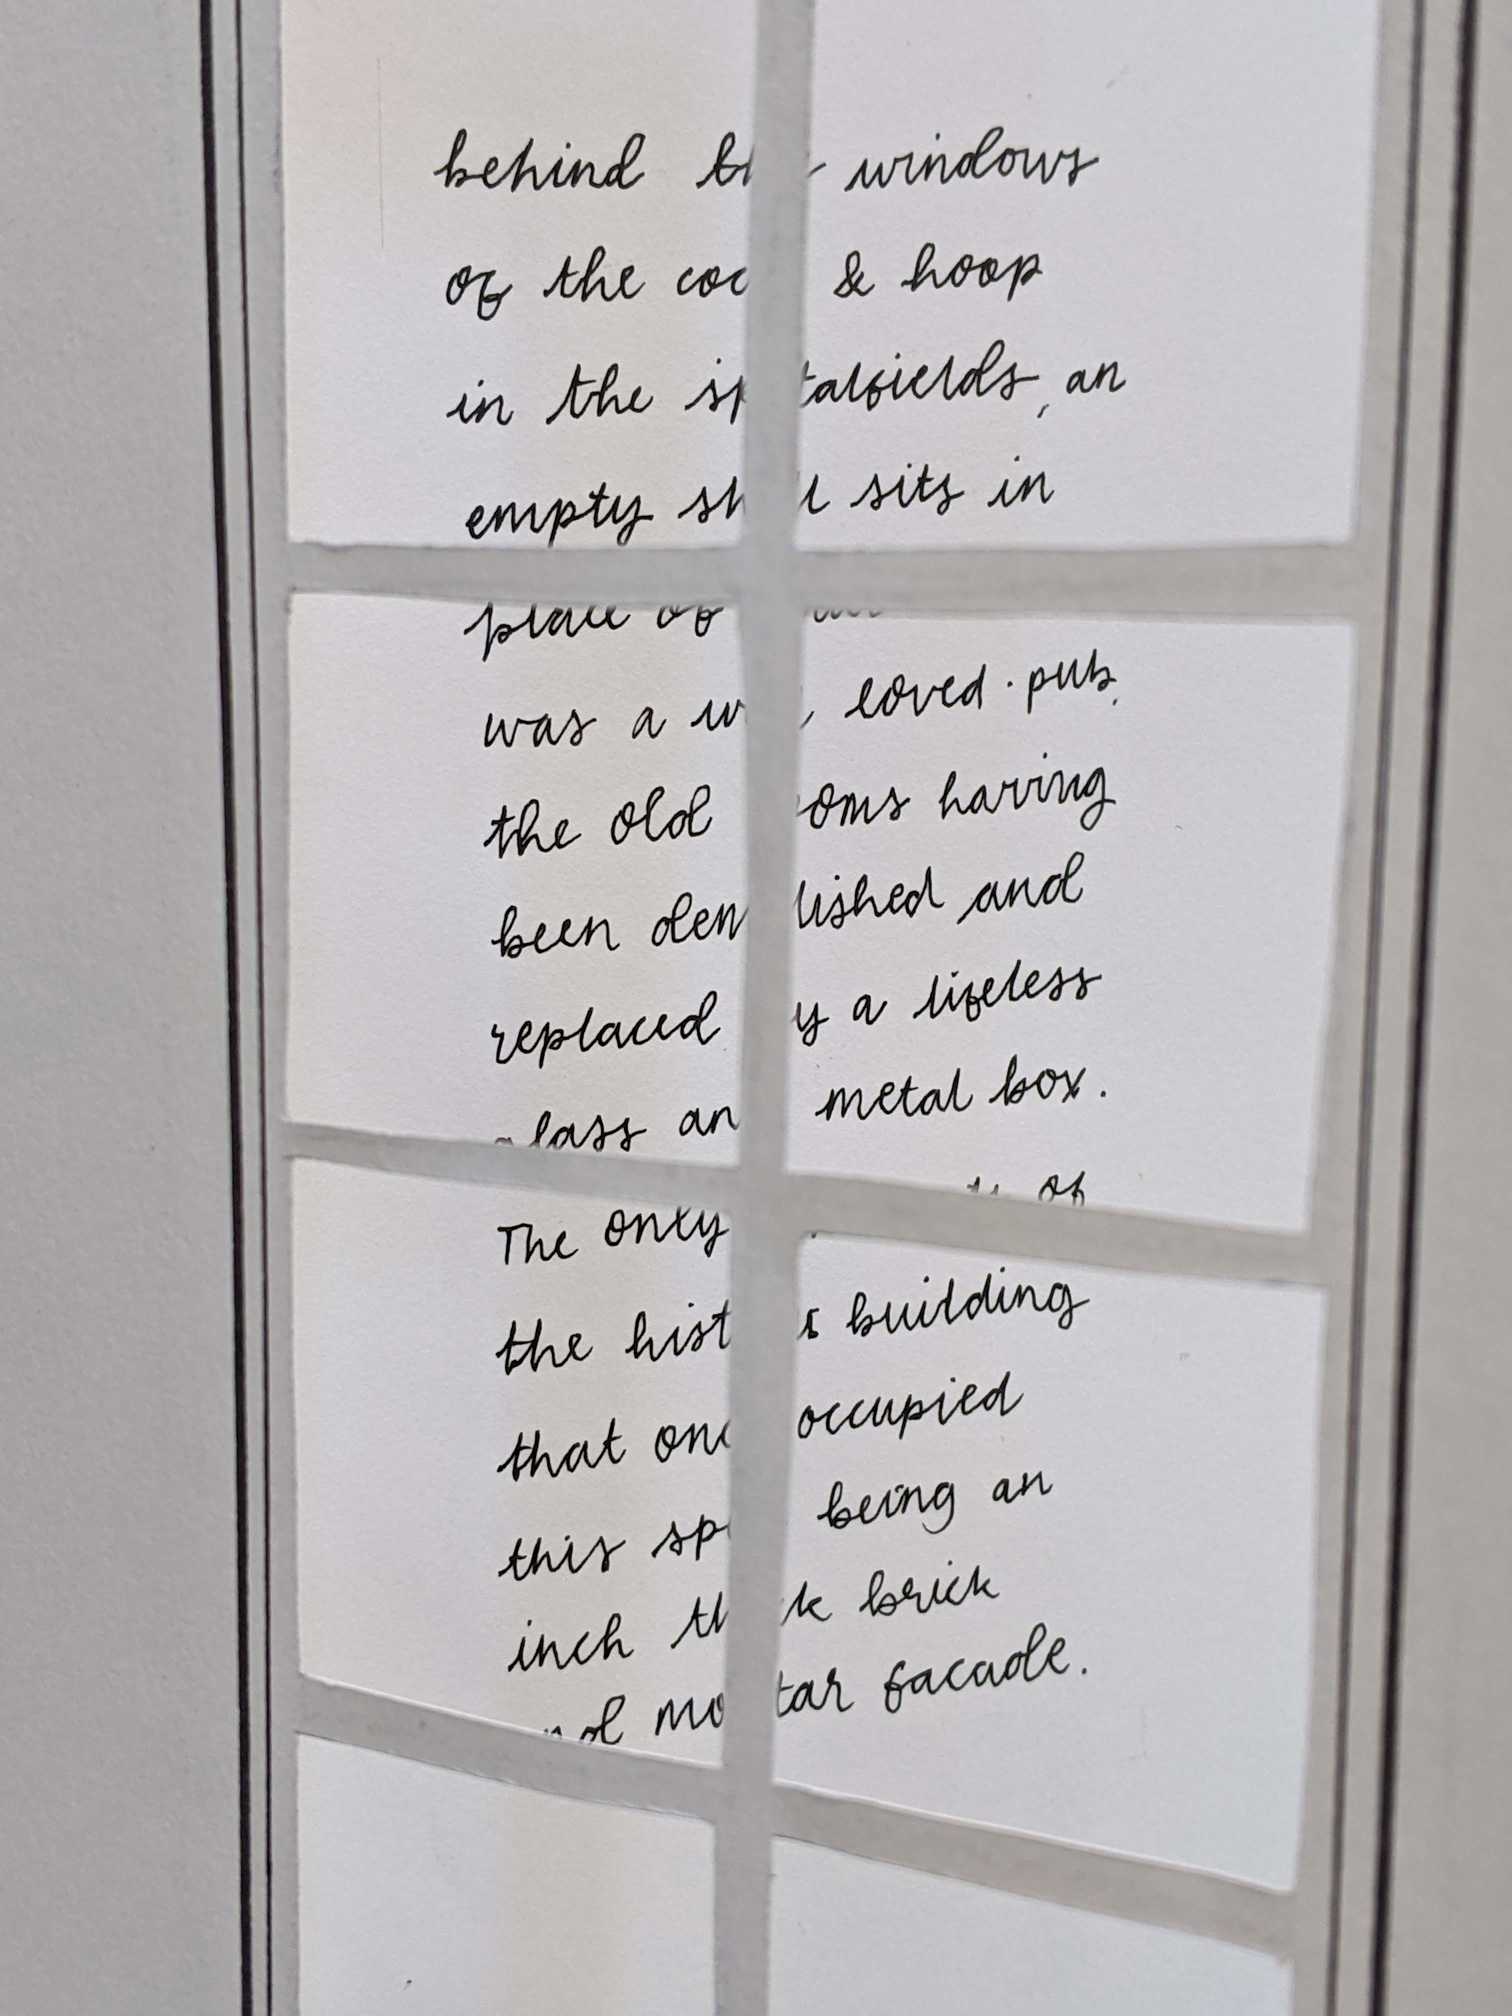 behind the windows
of the cock & hoop
in the spitalfields, an
empty shell sits in
place of
was a well loved pub,
the old rooms having
been demolished and
replaced by a lifeless
glass and metal box.
The only of
the historic building
that once occupied
this space being an
inch thick brick
and mortar facade.